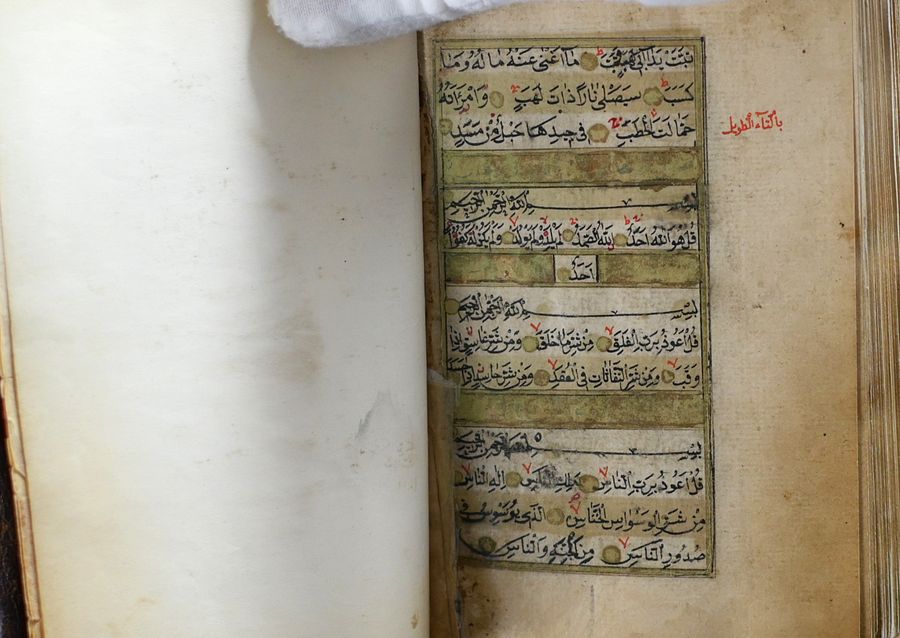 تبت يدا ابى لهب وتب ما اغنى عنه ماله وما
كسب سيصلى نارا ذات لهب وامراته
حمالت الحطب فى جيدها حبل من مسد
بسم الله الرحمن الرحيم
قل هو الله احد الله الصمد لم يلد ولم يولد ولم يكن له كفوا
احد
بسم الله الرحمن الرحيم
قل اعوذ برب الفلق من شر ما خلق ومن شر غاسق اذا
وقب ومن شر النفاثات فى العقد ومن شر حاسد اذا حسد
بسم الله الرحمن الرحيم
قل اعوذ برب الناس ملك الناس اله الناس
من شر الوسواس الخناس الذى يوسوس فى
صدور الناس من الجنة والناس
بالتاء الطويل